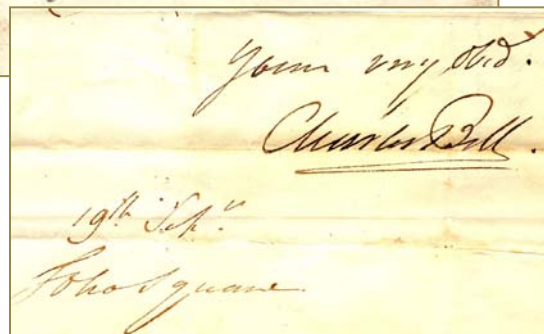 Yours very Obd.
Charles Bell.
19th Sepr.
Soho Square.